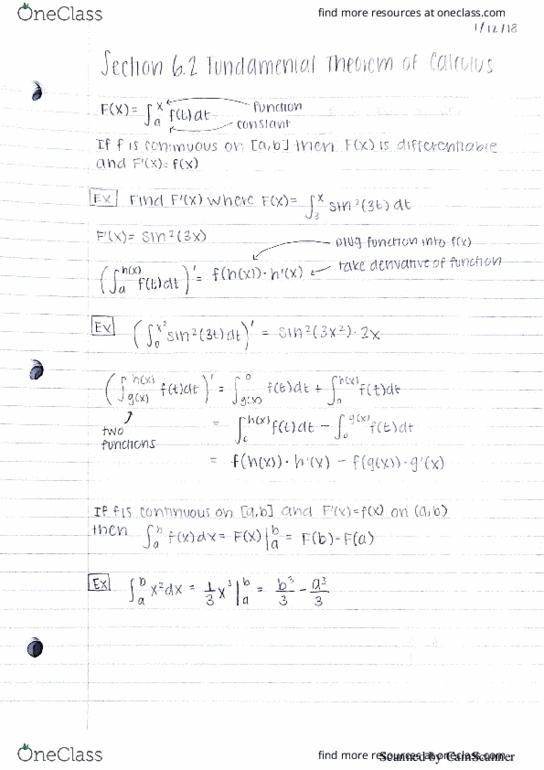 OneClass
find more resources at oneclass.com
1/12/18
Section 6.2 Fundamental Theorem of Calculus
F(x)= ∫_a^x f(t)dt
function
constant
If f is continuous on [a,b] then F(x) is differentiable
and F'(x)=f(x)
Ex Find F'(x) where F(x)= ∫_3^x sin²(3t) dt
F'(x)= sin²(3x)
plug function into f(x)
(∫_a^h(x) f(t)dt)' = f(h(x))·h'(x)
take derivative of function
Ex (∫_0^x² sin²(3t)dt)' = sin²(3x²)·2x
(∫_g(x)^h(x) f(t)dt)' = ∫_g(x)^0 f(t)dt + ∫_0^h(x) f(t)dt
two
functions
= ∫_0^h(x) f(t)dt − ∫_0^g(x) f(t)dt
= f(h(x))·h'(x) − f(g(x))·g'(x)
If f is continuous on [a,b] and F'(x)=f(x) on (a,b)
then ∫_a^b f(x)dx = F(x)|_a^b = F(b)-F(a)
Ex ∫_a^b x²dx = 1/3 x³|_a^b = b³/3 − a³/3
OneClass
find more resources at oneclass.com
Scanned by CamScanner